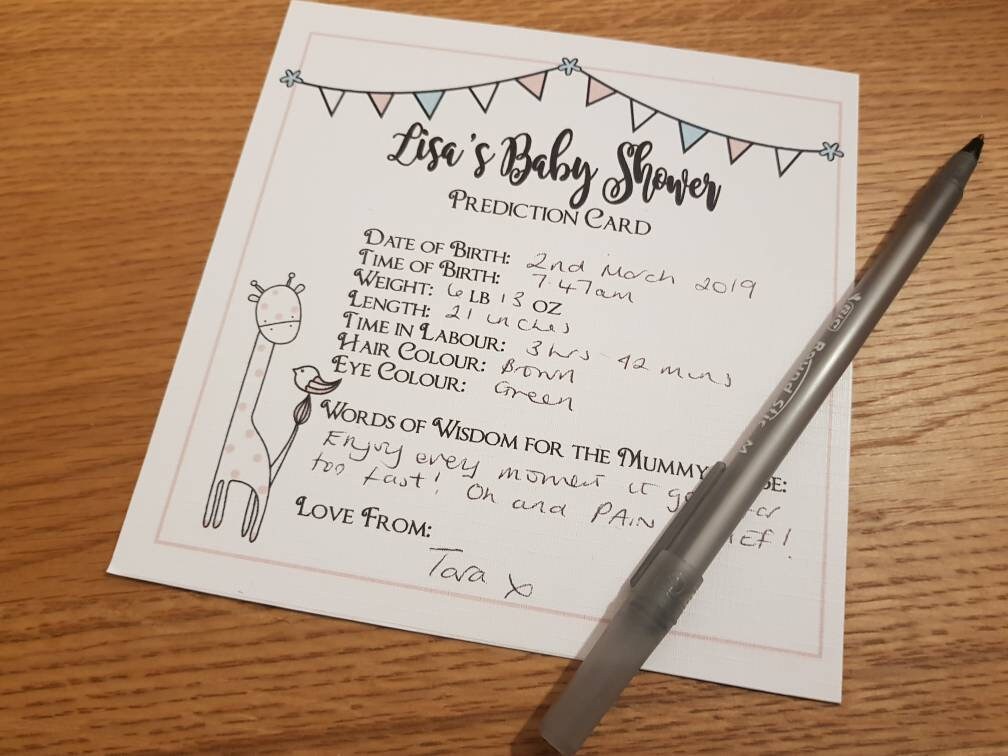 Lisa's Baby Shower
PREDICTION CARD
DATE OF BIRTH: 2nd March 2019
TIME OF BIRTH: 7:47am
WEIGHT: 6 LB 13 OZ
LENGTH: 21 inches
TIME IN LABOUR: 3 hrs 42 mins
HAIR COLOUR: Brown
EYE COLOUR: Green
WORDS OF WISDOM FOR THE MUMMY
Enjoy every moment it
too fast! Oh and PAIN
LOVE FROM:
Tara x
BIC Round Stic M